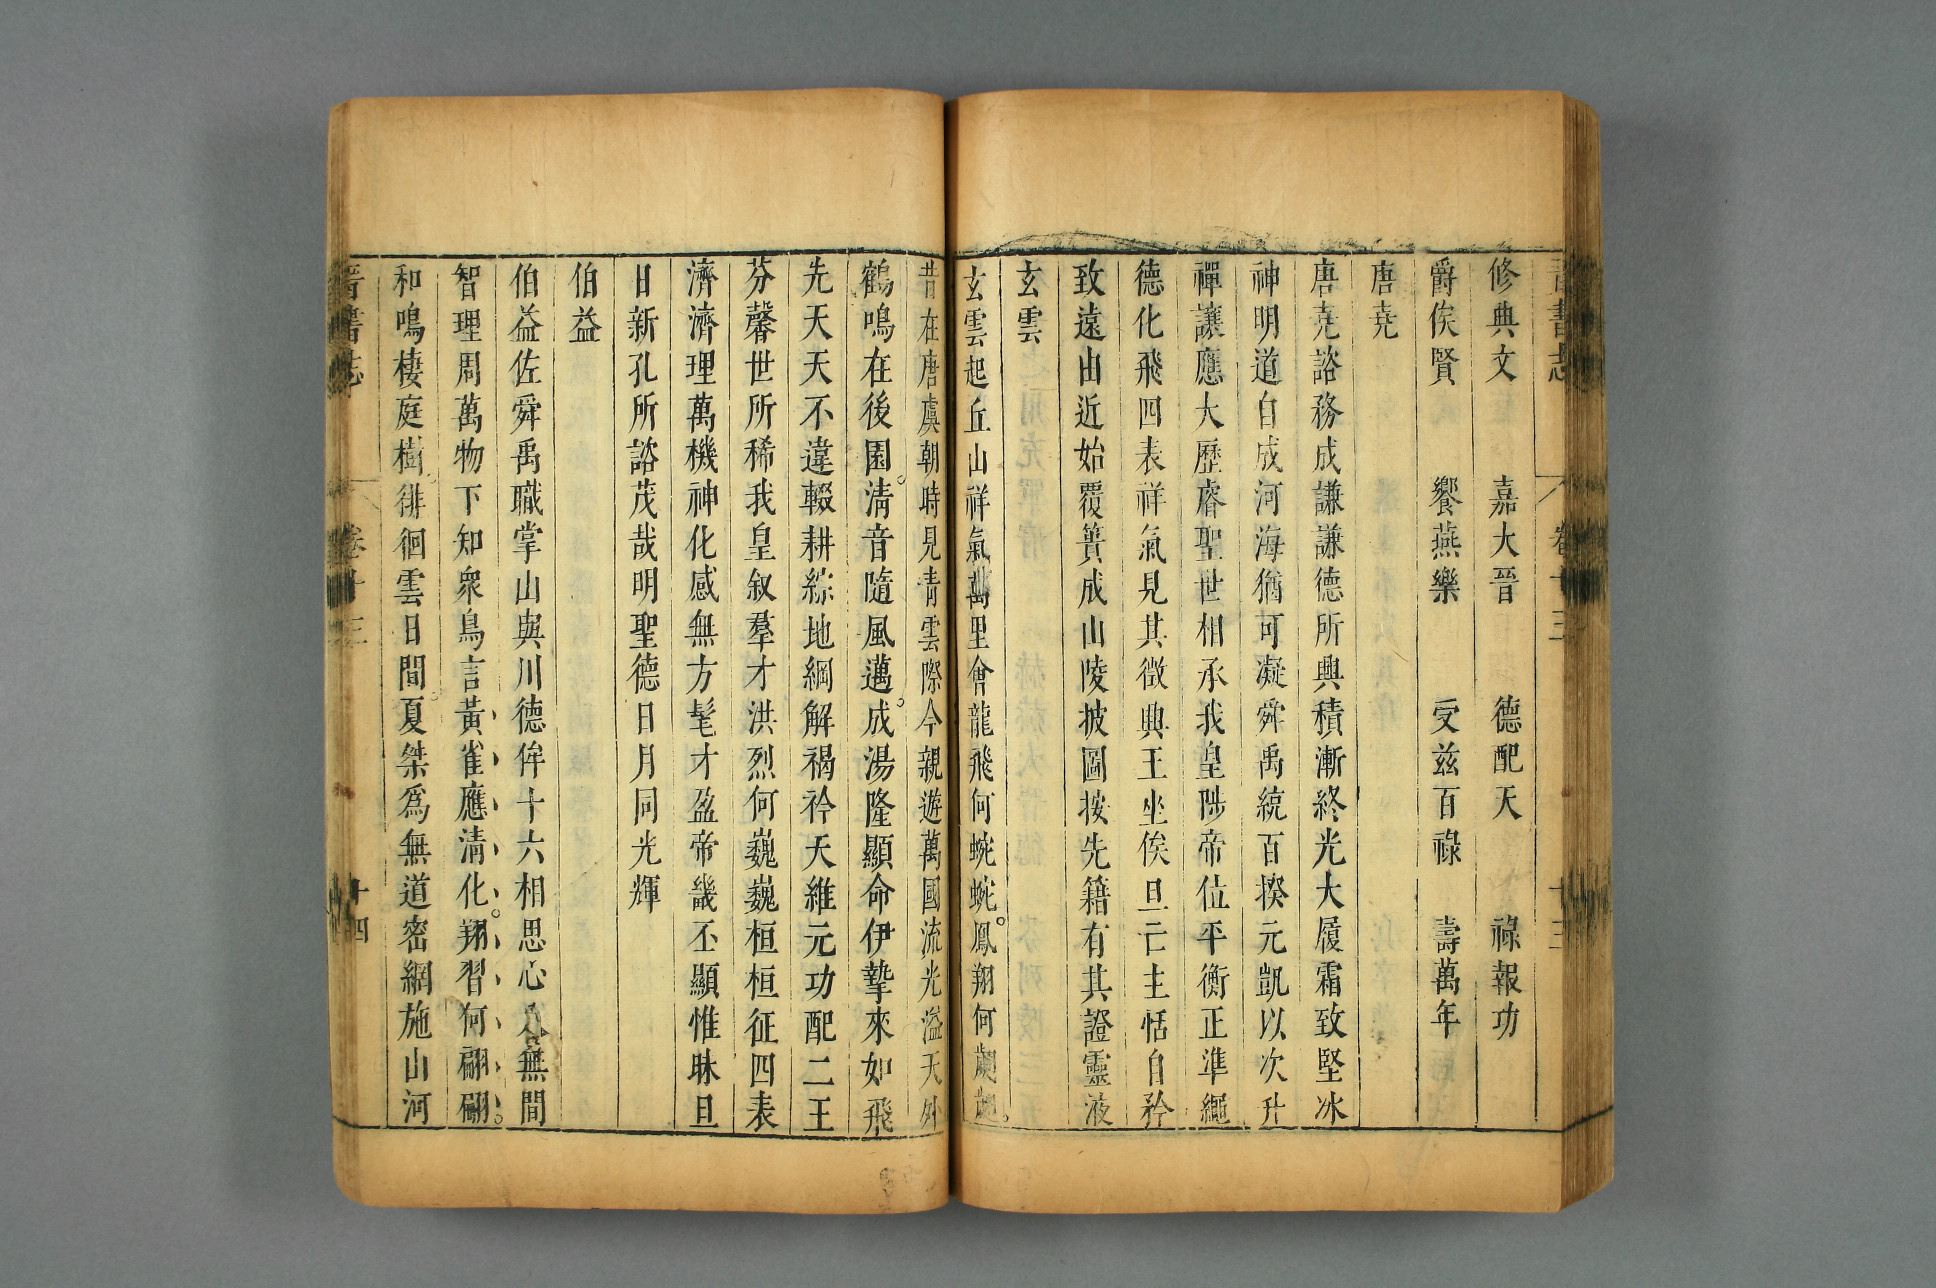 晉書志 卷十三 十三
修典文 嘉大晉 德配天 祿報功
爵俟賢 饗燕樂 受兹百祿 壽萬年
唐堯
唐堯諮務成謙謙德所興積漸終光大履霜致堅冰
神明道自成河海猶可凝舜禹統百揆元凱以次升
禪讓應大歷睿聖世相承我皇陟帝位平衡正準繩
德化飛四表祥氣見其徵興王坐俟旦亡主恬自矜
致遠由近始覆簣成山陵披圖按先籍有其證靈液
玄雲
玄雲起丘山祥氣萬里會龍飛何蜿蜿鳳翔何翽翽
昔在唐虞朝時見青雲際今親遊萬國流光溢天外
鶴鳴在後園清音隨風邁成湯隆顯命伊摯來如飛
先天天不違輟耕綜地綱解褐衿天維元功配二王
芬馨世所稀我皇叙羣才洪烈何巍巍桓桓征四表
濟濟理萬機神化感無方髦才盈帝畿丕顯惟昧旦
日新孔所諮茂哉明聖德日月同光輝
伯益
伯益佐舜禹職掌山與川德侔十六相思心入無間
智理周萬物下知衆鳥言黃雀應清化翔習何翩翩
和鳴棲庭樹徘徊雲日間夏桀爲無道密網施山河
晉書志 卷十三 十四